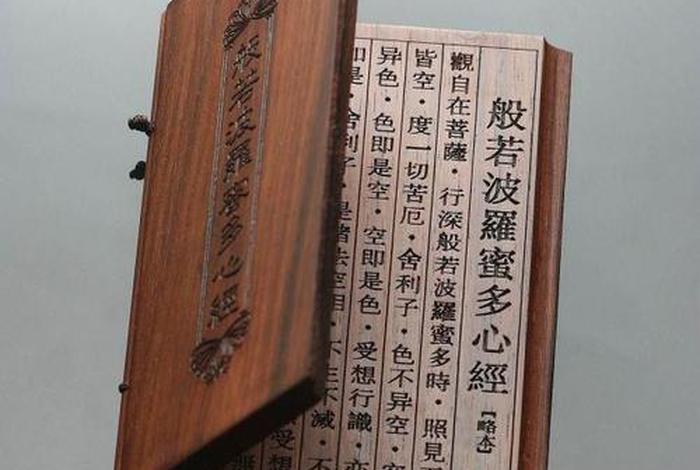 般若波羅蜜多心經【略本】
觀自在菩薩・行深般若波羅蜜多時・照見
皆空・度一切苦厄・舍利子・色不异空・
异色・色即是空・空即是色・受想行識・亦
即是・舍利子・是诸法空相・不生不滅・不
受想
無
般若波羅蜜多心經